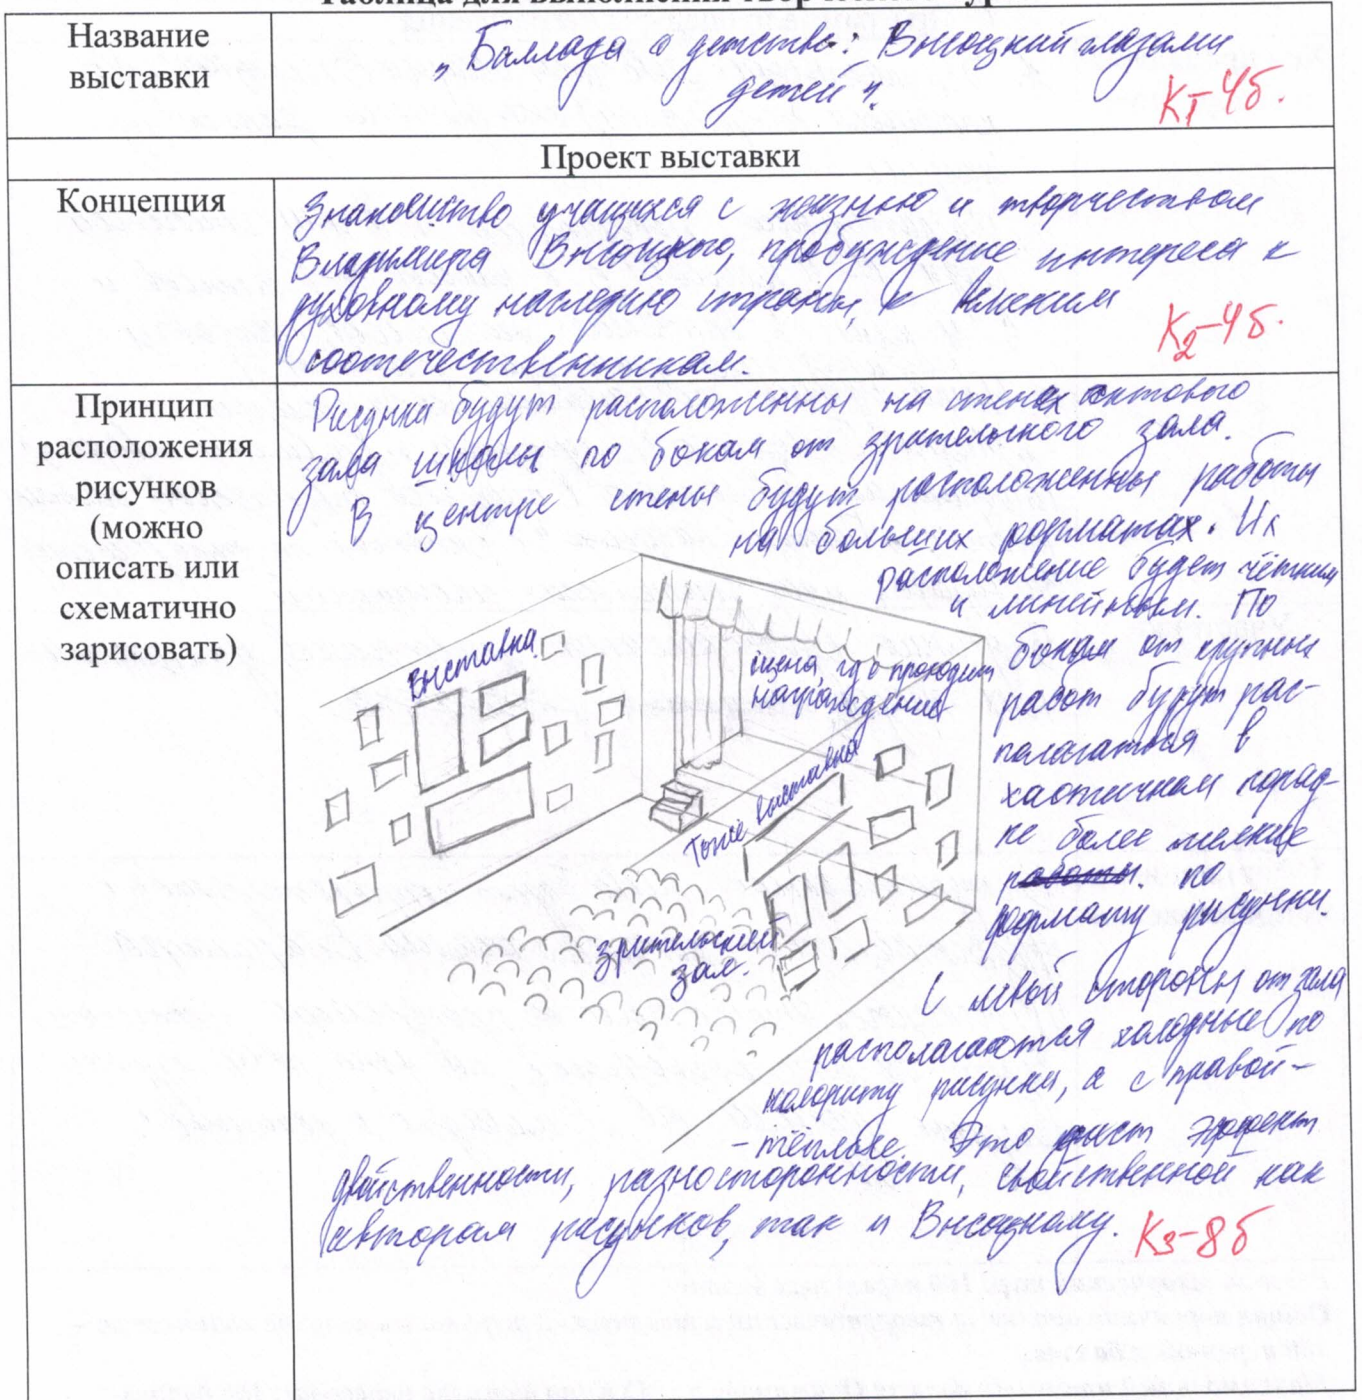 Таблица для выполнения
Название
выставки
„Баллада о детстве: Высоцкий глазами
детей".
К1-4б.
Проект выставки
Концепция
Знакомство учащихся с жизнью и творчеством
Владимира Высоцкого, пробуждение интереса к
духовному наследию страны, к великим
соотечественникам.
К2-4б.
Принцип
расположения
рисунков
(можно
описать или
схематично
зарисовать)
Рисунки будут расположенны на стенах актового
зала школы по бокам от зрительного зала.
В центре стены будут расположенны работы
на больших форматах. Их
расположение будет чётким
и линейным. По
бокам от крупных
работ будут рас-
полагаться в
хаотичном поряд-
ке более мелкие
работы. по
формату рисунки.
выставка
сцена, где проходит
награждение
Тоже выставка
зрительский
зал.
С левой стороны от зала
располагаются холодные по
колориту рисунки, а с правой-
-тёплые. Это даст эффект
двойственности, разносторонности, свойственной как
авторам рисунков, так и Высоцкому.
К3-8б